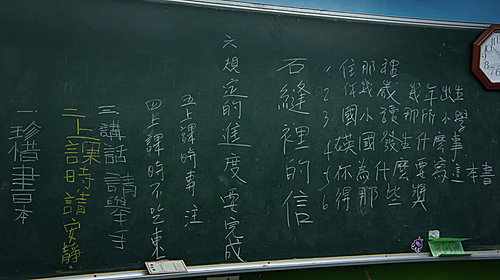 一 珍惜書本
二 上課時請安靜。
三 講話請舉手
四 上課時不吃東
五 上課時事注
六 規定的進度要完成
石縫裡的信
1. 住那裡
2. 你幾歲 幾年出生
3. 國小讀那所小學
4. 國發生什麼事
5. 你為什麼要寫這本書
6 得那些獎